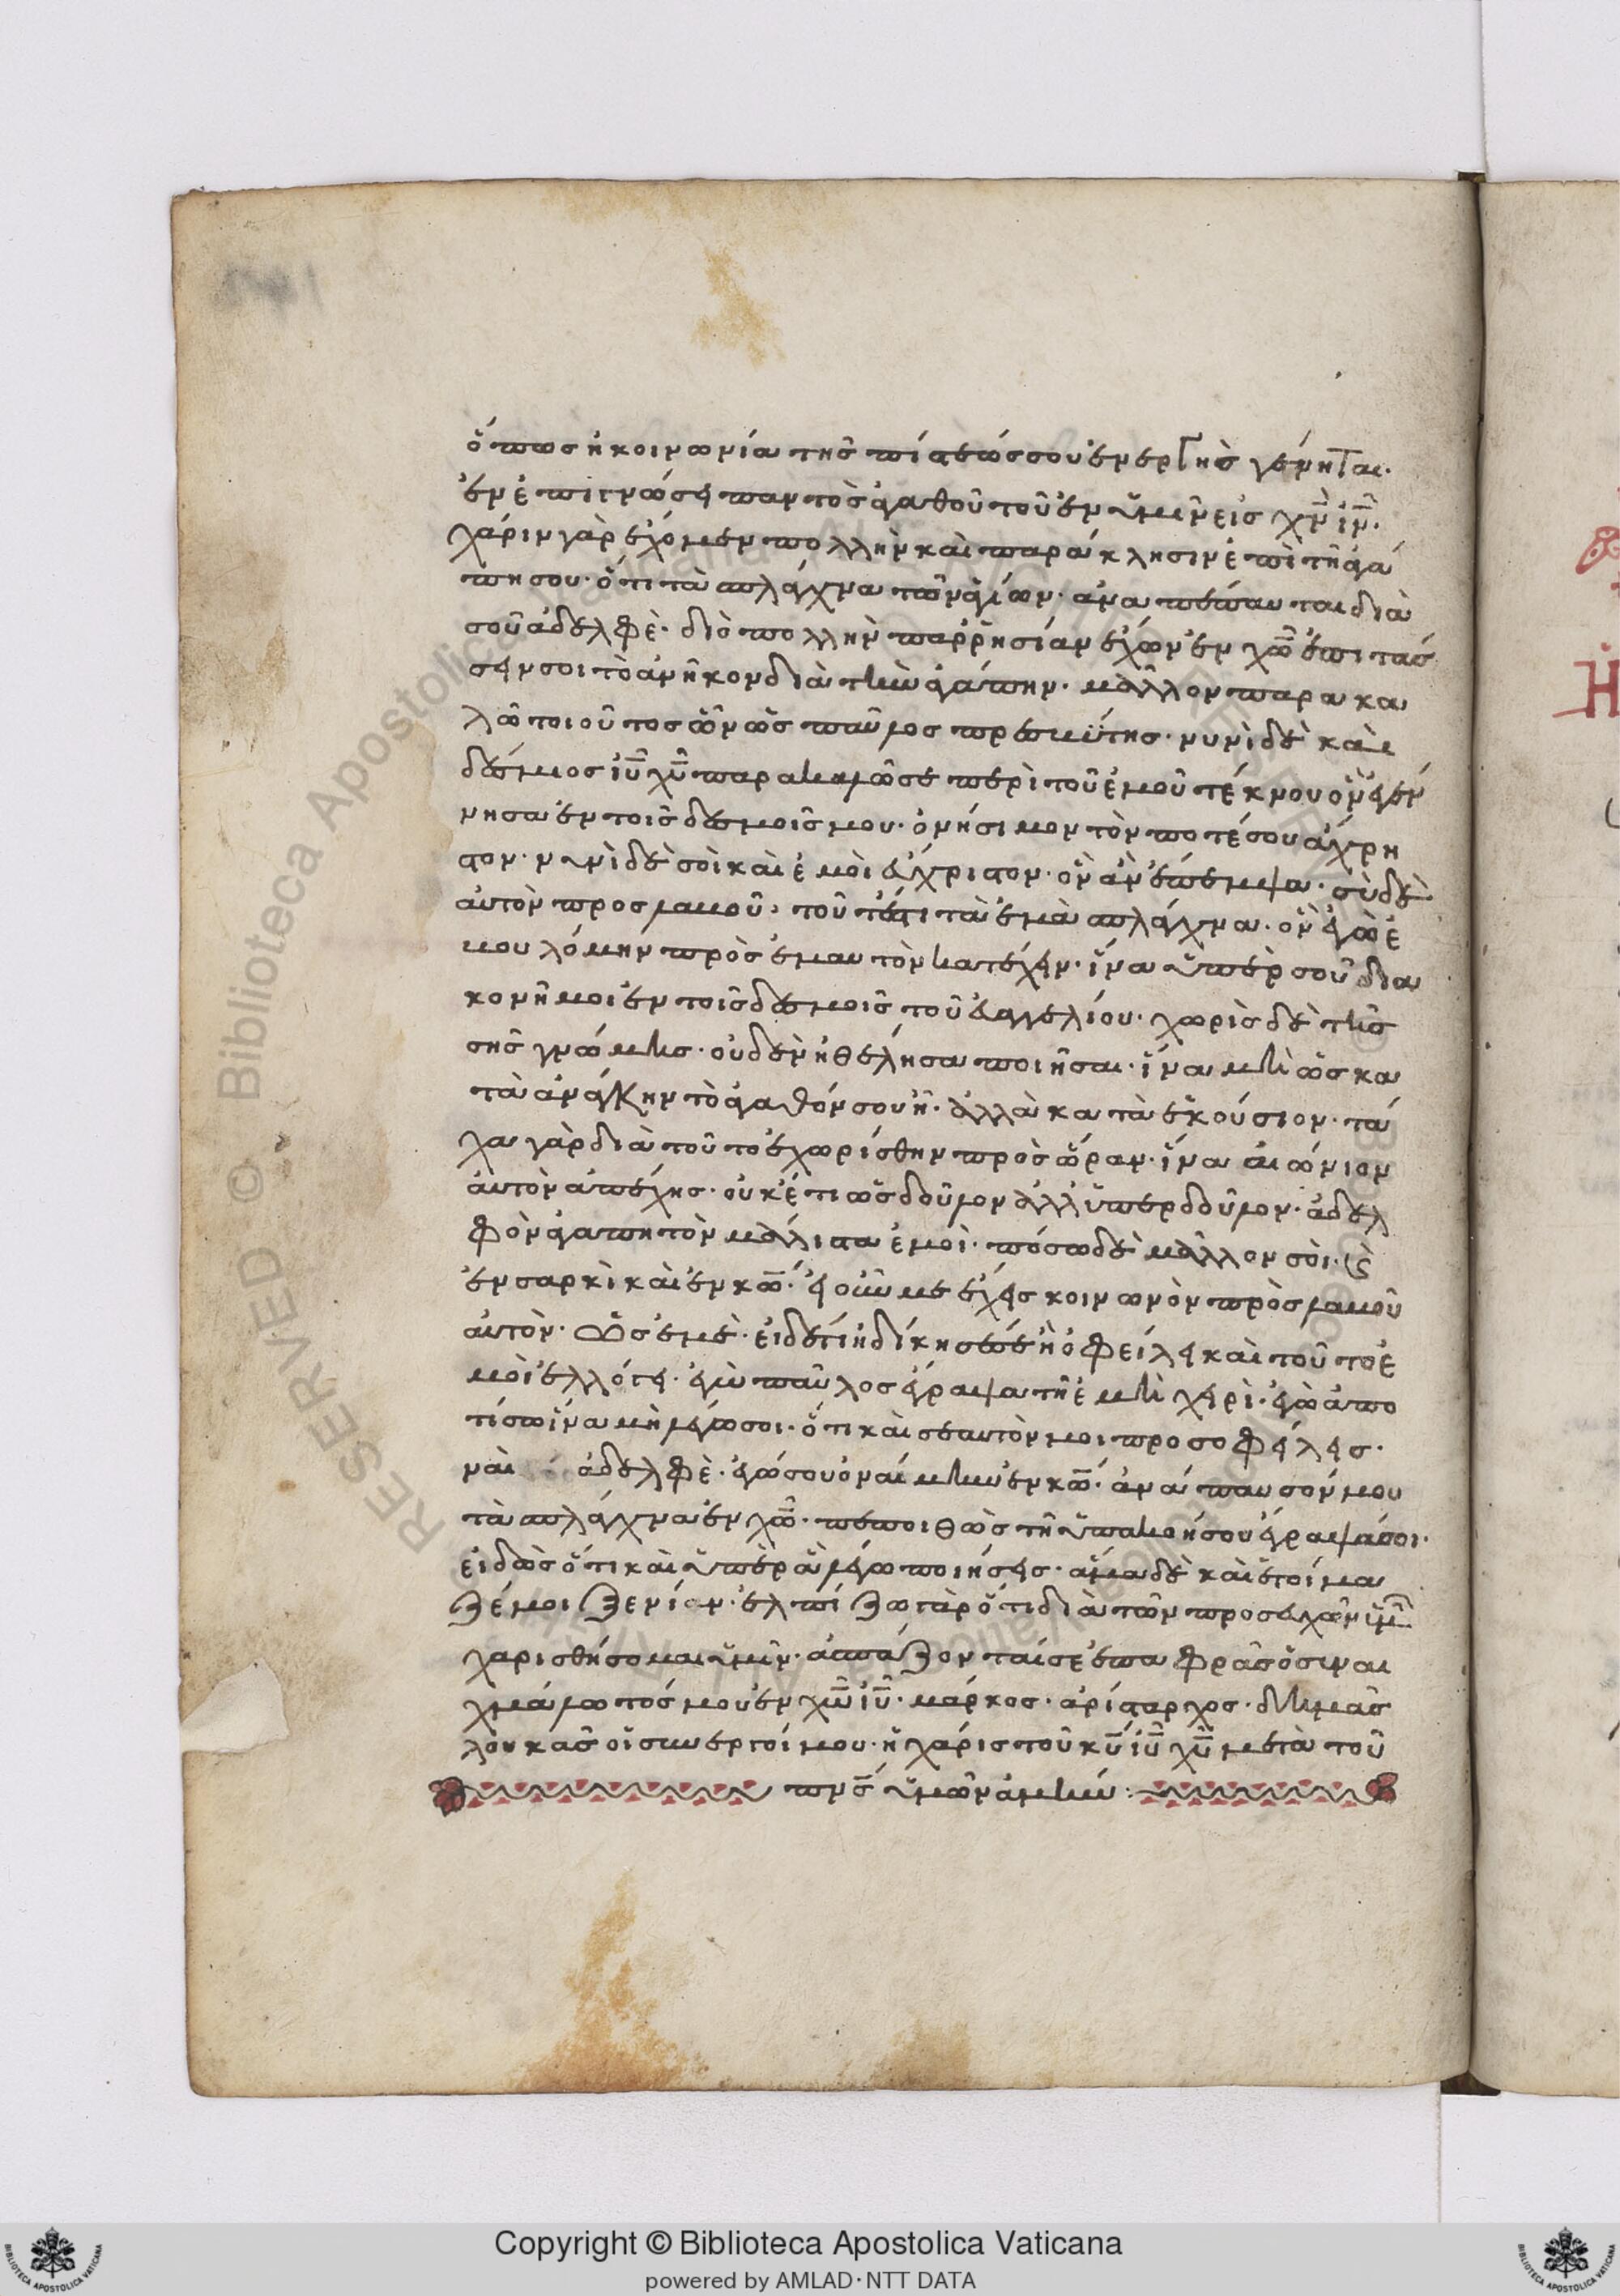 ὅπως ἡ κοινωνία τῆς πίστεώς σου ἐνεργὴς γένηται·
ἐν ἐπιγνώσει παντὸς ἀγαθοῦ τοῦ ἐν ὑμῖν εἰς χν̅ ιν̅·
χάριν γὰρ ἔχομεν πολλὴν καὶ παράκλησιν ἐπὶ τῇ ἀγά
πη σου· ὅτι τὰ σπλάγχνα τῶν ἁγίων· ἀναπέπαυται διὰ
σοῦ ἀδελφὲ· διὸ πολλὴν παῤῥησίαν ἔχων ἐν χω̅ ἐπιτάσ
σειν σοι τὸ ἀνῆκον διὰ τὴν ἀγάπην· μᾶλλον παρακα
λῶ τοιοῦτος ὢν ὡς παῦλος πρεσβύτης· νυνὶ δὲ καὶ
δέσμιος ιυ̅ χυ̅ παρακαλῶ σε περὶ τοῦ ἐμοῦ τέκνου ὃν ἐγέν
νησα ἐν τοῖς δεσμοῖς μου· ὀνήσιμον τὸν ποτέ σου ἄχρη
στον· νυνὶ δὲ σοὶ καὶ ἐμοὶ εὔχριστον· ὃν ἀνέπεμψα· σὺ δὲ
αὐτὸν προσλαβοῦ· τοῦτέστι τὰ ἐμὰ σπλάγχνα· ὃν ἐγὼ ἐ
βουλόμην πρὸς ἐμαυτὸν κατέχειν· ἵνα ὑπὲρ σοῦ δια
κονῇ μοι ἐν τοῖς δεσμοῖς τοῦ εὐαγγελίου· χωρὶς δὲ τῆς
σῆς γνώμης· οὐδὲν ἠθέλησα ποιῆσαι· ἵνα μὴ ὡς κα
τὰ ἀνάγκην τὸ ἀγαθόν σου ᾖ· ἀλλὰ κατὰ ἑκούσιον· τά
χα γὰρ διὰ τοῦτο ἐχωρίσθην πρὸς ὥραν· ἵνα αἰώνιον
αὐτὸν ἀπέχης· οὐκέτι ὡς δοῦλον ἀλλ ὑπερ δοῦλον· ἀδελ
φὸν ἀγαπητὸν μάλιστα ἐμοὶ· πόσω δὲ μᾶλλον σὸι· ϗ
ἐν σαρκὶ καὶ ἐν κω̅· εἰ οὖν με ἔχεις κοινωνὸν πρὸσλαβοῦ
αὐτὸν· ὡς ἐμὲ· εἰ δέ τι ἠδίκησέ σε ἢ ὀφείλει καὶ τοῦτο ἐ
μοὶ ἐλλόγει· ἐγὼ παῦλος ἔγραψα τῇ ἐμὴ χειρὶ· ἐγὼ ἀπο
τίσω ἵνα μὴ λέγω σοι· ὅτι καὶ σεαυτὸν μοι προσοφείλεις·
ναὶ ἀδελφὲ· ἐγώ σου ὀναίμην ἐν κω̅· ἀνάπαυσόν μου
τὰ σπλάγχνα ἐν χω̅· πεποιθὼς τῇ ὑπακοῇ σου ἔγραψά σοι·
εἰδὼς ὅτι καὶ ὑπὲρ ἃ λέγω ποιήσεις· ἅμα δὲ καὶ ἑτοίμα
ζέ μοι ξενίαν· ἐλπίζω γὰρ ὅτι διὰ τῶν προσευχῶν ὑμῶ̅
χαρισθήσομαι ὑμῖν· ἀσπάζονταί σε ἐπαφρᾶς ὁ συναι
χμάλωτός μου ἐν χω̅ ιυ̅· μάρκος· ἀρίσταρχος· δημᾶς
λουκᾶς οἱ συνεργοί μου· ἡ χάρις τοῦ κυ̅ ιυ̅ χυ̅ μετὰ τοῦ
πνς̅ ὑμῶν ἀμήν:
RESERVED © Biblioteca Apostolica Vaticana
Copyright © Biblioteca Apostolica Vaticana
powered by AMLAD·NTT DATA